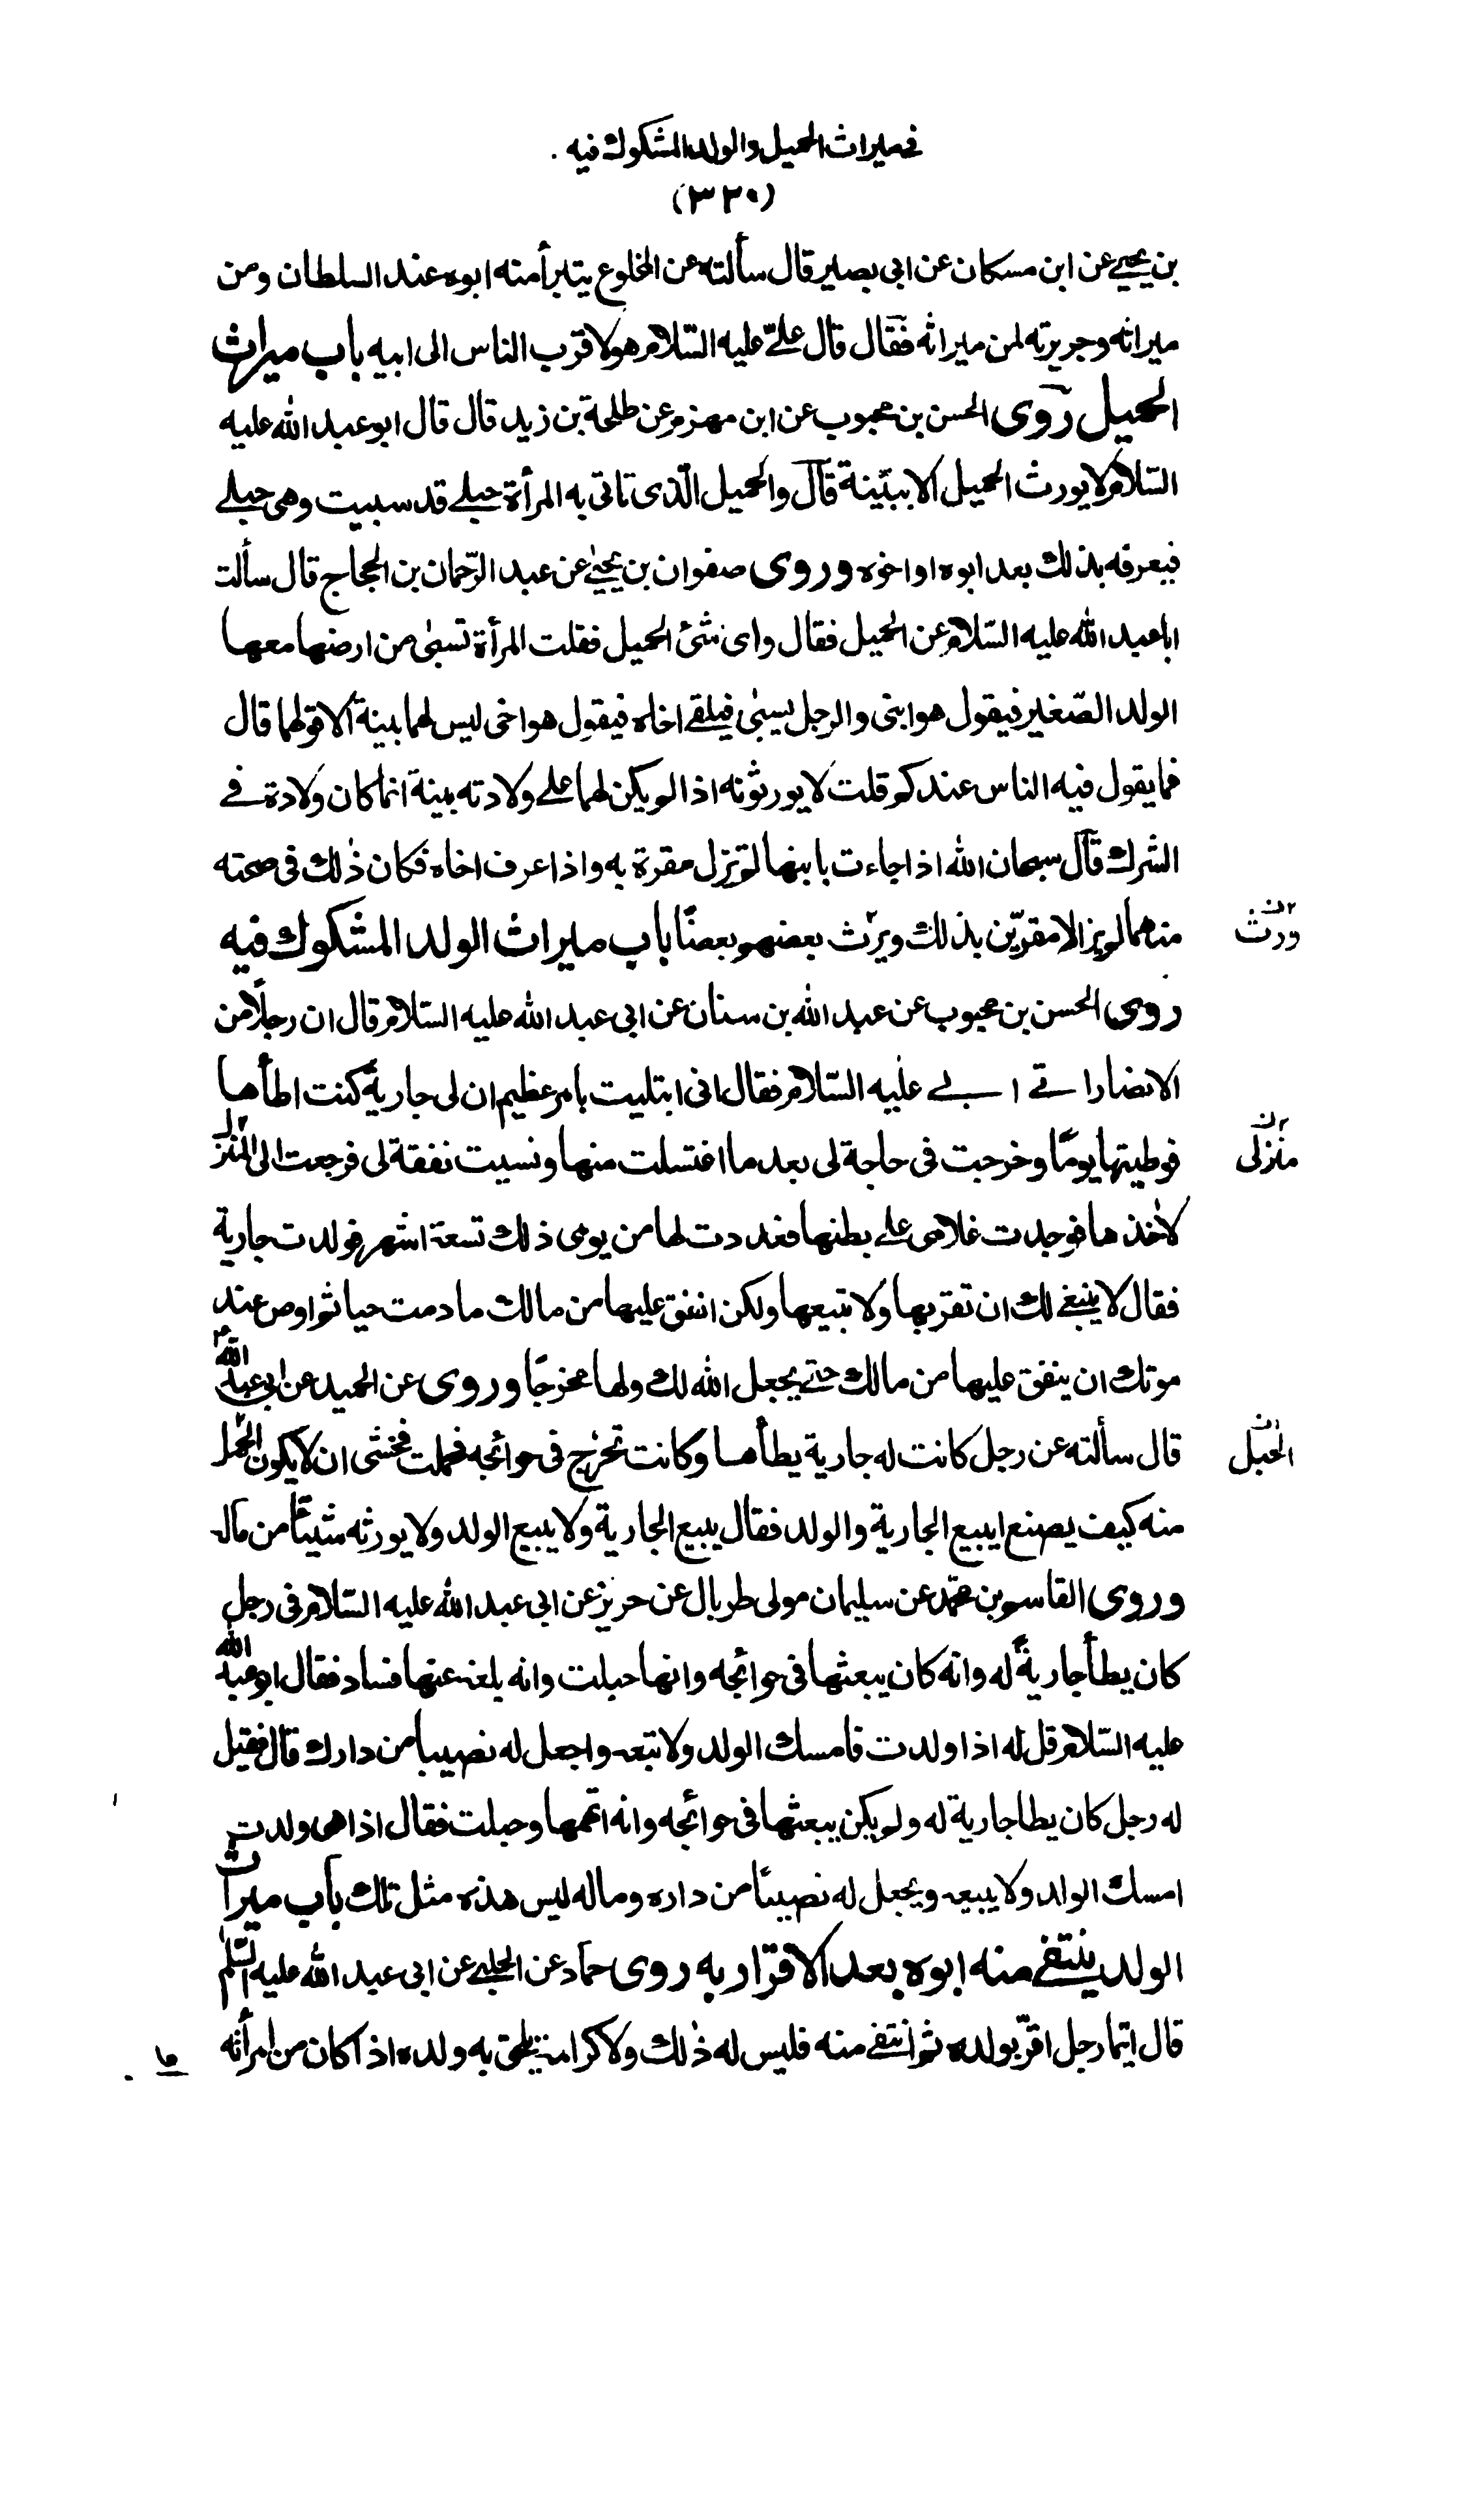 في ميراث الحميل والولد المشكوك فيه
(٣٢٠)
بن يحيي عن ابن مسكان عن ابي بصير قال سألته عن المخلوع يتبرأ منه ابوه عند السلطان ومن
ميراثه وجريرته لمن ميراثه فقال قال عليّ عليه السّلام هو لاقرب الناس الى ابيه باب ميراث
الحميل روى الحسن بن محبوب عن ابن مهزم عن طلحة بن زيد قال قال ابو عبد الله عليه
السّلام لا يورث الحميل الا ببيّنة قال والحميل الّذى تاتى به المرأة حبلى قد سبيت وهى حبلى
فيعرفه بذلك بعد ابوه او اخوه وروى صفوان بن يحيىٰ عن عبد الرّحمان بن الحجاج قال سألت
ابا عبد الله عليه السّلام عن الحميل فقال واى شئ الحميل فقلت المرأة تسبىٰ من ارضها معها
الولد الصّغير فيقول هو ابنى والرجل يسبىٰ فيلقى اخاه فيقول هو اخى ليس لهما بينة الا قولهما قال
فما يقول فيه الناس عندكم قلت لا يورثونه اذا لم يكن لهما على ولادته بينة انما كان ولادة في
الشرك قال سبحان الله اذا جاءت بابنها لم تزل مقرة به واذا عرف اخاه فكان ذٰلك فى صحته
منهما لم يزالا مقرّين بذلك ويرث بعضهم بعضًا باب ميراث الولد المشكوك فيه
ورث
روى الحسن بن محبوب عن عبد الله بن سنان عن ابى عبد الله عليه السّلام قال ان رجلًا من
الانصار اتى ابي عليه السّلام فقال انى ابتليت بامر عظيم ان لى جاريةً كنت اطأها
فوطيتها يومًا وخرجت فى حاجة لى بعد ما اغتسلت منها ونسيت نفقة لى فرجعت الى المنزل
منزلى
لأخذها فوجدت غلامى على بطنها فعددت لها من يومى ذلك تسعة اشهر فولدت جارية
فقال لا ينبغى لك ان تقربها ولا تبيعها ولكن انفق عليها من مالك ما دمت حيا ثم اوص عند
موتك ان ينفق عليها من مالك حتى يجعل الله لك ولها مخرجًا وروى عن الحميد عن ابى عبد الله
قال سألته عن رجل كانت له جارية يطأها وكانت تخرج فى حوائجه فحملت فخشى ان لا يكون الحمل
الحبل
منه كيف يصنع ايبيع الجارية والولد فقال يبيع الجارية ولا يبيع الولد ولا يورثه شيئًا من ماله
وروى القاسم بن محمّد عن سليمان مولى طربال عن حريز عن ابى عبد الله عليه السّلام فى رجل
كان يطأ جاريةً له وانه كان يبعثها فى حوائجه وانها حبلت وانه بلغه عنها فساد فقال ابو عبد الله
عليه السّلام قل له اذا ولدت فامسك الولد ولا تبعه واجعل له نصيبا من دارك قال فقيل
له رجل كان يطا جارية له ولم يكن يبعثها فى حوائجه وانه اتهمها وحبلت فقال اذا هى ولدت
امسك الولد ولا يبيعه ويجعل له نصيبًا من داره وماله ليس هذه مثل تلك باب ميراث
الولد ينتفى منه ابوه بعد الاقرار به روى حمّاد عن الحلبى عن ابى عبد الله عليه السّلم
قال ايّما رجل اقرّ بولده ثم انتفى منه فليس له ذٰلك ولا كرامة يلحق به ولده اذا كان من امرأته